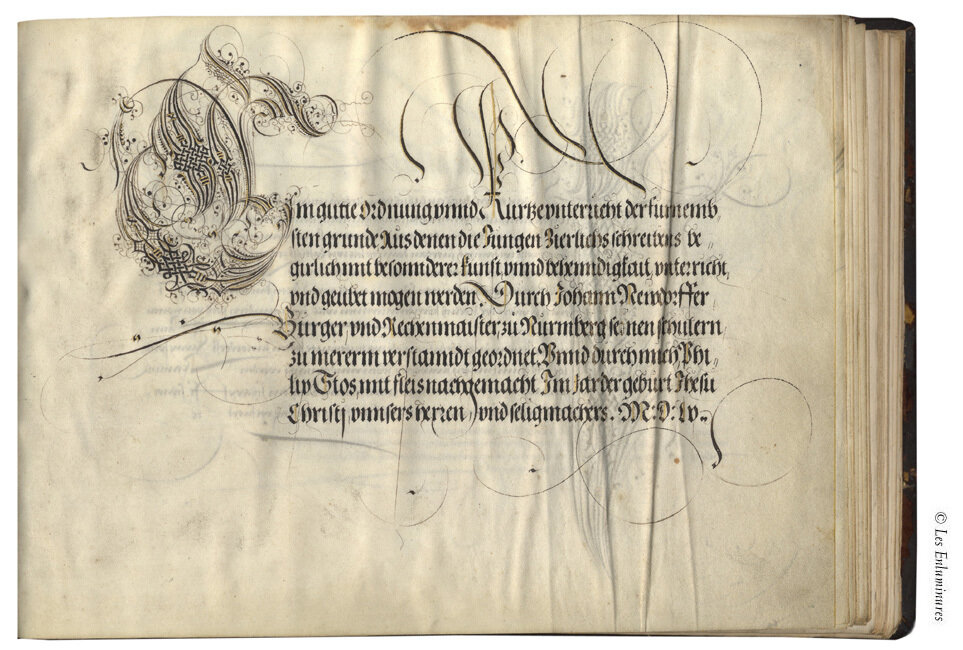 Ein gutte Ordnung vnnd Kurtze vnterricht der furnemb
sten grunde Aus denen die Jungen Zierlichs schreibens be„
girlich mit besonnderer kunst vnnd behenndigkait, vnterricht,
vnd geubet mogen werden. Durch Johann Newdorffer
Burger vnd Rechenmaister zu Nurmberg seinen schulern
zu mererm verstanndt geordnet. Vnnd durch mich Phi„
lip Stos mit fleis nachgemacht Im Jar der geburt Jhesu
Christj vnnsers herren, vnd seligmachers. M.D.Lv.
© Les Enluminures